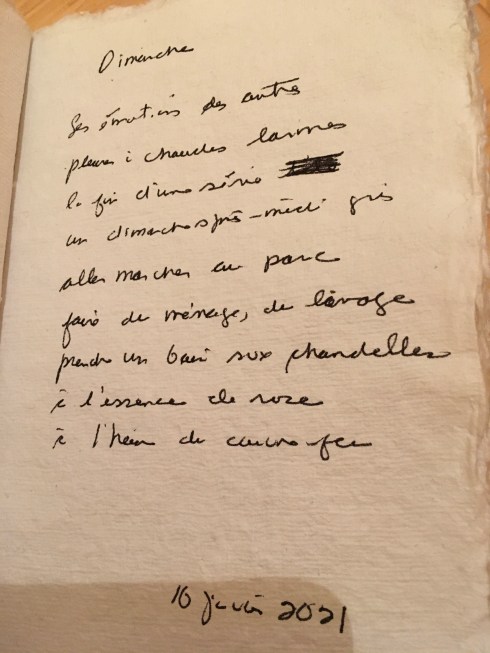 Dimanche
les émotions des autres
pleurer à chaudes larmes
la fin d'une série
un dimanche après-midi gris
aller marcher au parc
faire du ménage, du lavage
prendre un bain aux chandelles
à l'essence de rose
à l'heure du couvre-feu
10 janvier 2021